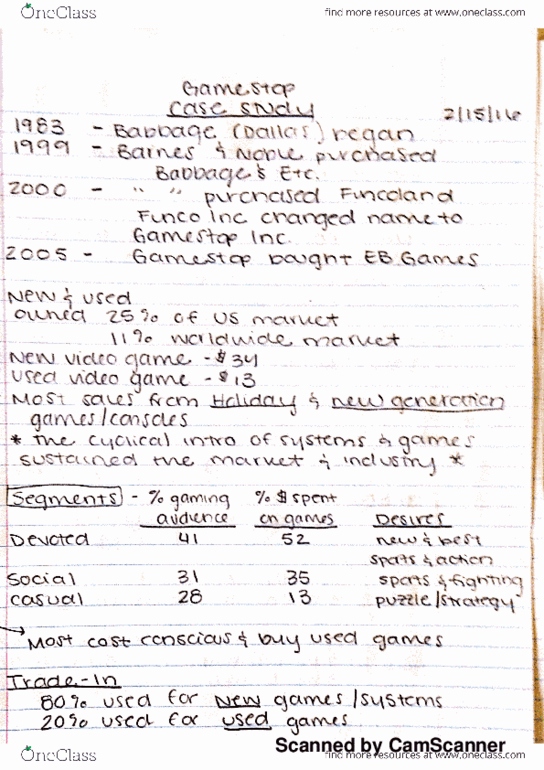 OneClass
find more resources at www.oneclass.com
Gamestop
Case Study
2/15/16
1983 - Babbage (Dallas) began
1999 - Barnes & Noble purchased
Babbage's Etc.
2000 - " " purchased Funcoland
Funco Inc changed name to
Gamestop Inc.
2005 - Gamestop bought EB Games
New & used
owned 25% of US market
11% worldwide market
New video game - $34
Used video game - $13
Most sales from Holiday & new generation
games/consoles
* the cyclical intro of systems & games
sustained the market & industry *
Segments - % gaming audience % $ spent on games Desires
Devoted 41 52 new & best
sports & action
Social 31 35 sports & fighting
Casual 28 13 puzzle/strategy
→ Most cost conscious & buy used games
Trade-In
80% used for New games/systems
20% used for used games
Scanned by CamScanner
OneClass
find more resources at www.oneclass.com